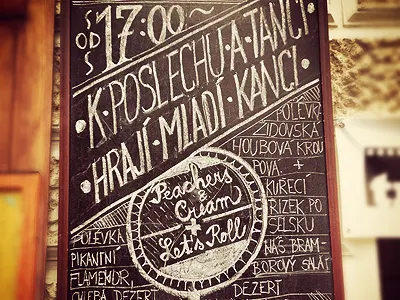 OD 17:00~
SS
K·POSLECHU·A·TANCI·
·HRAJÍ·MLADÍ·KANCI·
Peachers
&
Cream
+
Let's Roll
POLÉVKA
PIKANTNÍ
DEZERT
POLÉVK
ŽIDOVSKÁ
HOUBOVÁ KROU
POVÁ. +
KUŘECÍ
ŘÍZEK PO
SELSKU
NÁŠ BRAM-
BOROVÝ SALÁT
DEZERT